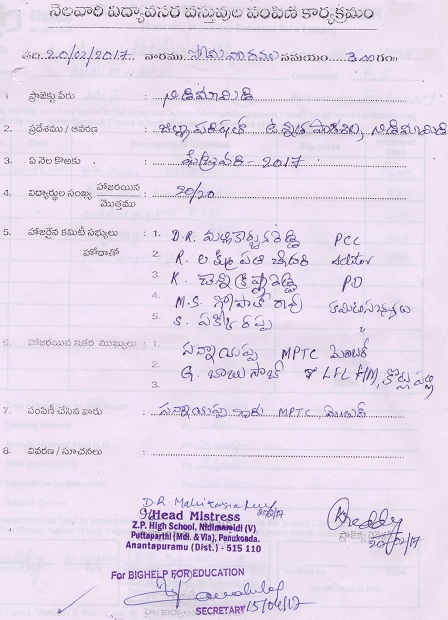 నెలవారి విద్యావసర వస్తువుల పంపిణీ కార్యక్రమం
తేది. 20/02/2017 వారము సోమవారము సమయం 3.00 గం॥
1. ప్రాజెక్టు పేరు : నిడిమామిడి
2. ప్రదేశము / ఆవరణ : జిల్లా పరిషత్ ఉన్నత పాఠశాల, నిడిమామిడి
3. ఏ నెల కొఱకు : ఫిబ్రవరి - 2017
4. విద్యార్థుల సంఖ్య హాజరయిన : 20/20
మొత్తము
5. హాజరైన కమిటీ సభ్యులు : 1. D.R. మల్లికార్జునరెడ్డి PCC
హోదాతో 2. R. లక్ష్మీపతి చౌదరి
3. K. రెడ్డి PO
4. M.S. గోపాల్ రావు
5.
6. హాజరయిన ఇతర ముఖ్యులు : 1. MPTC మెంబర్
2. G. బాబు సాబ్ LFL H/M,
3.
7. పంపిణీ చేసిన వారు : గారు MPTC మెంబర్
8. వివరణ / సూచనలు :
Head Mistress
Z.P. High School, Nidimamidi (V)
Puttaparthi (Mdl. & Via), Penukonda.
Anantapuramu (Dist.) - 515 110
20/02/17
For BIGHELP FOR EDUCATION
SECRETARY 15/04/17